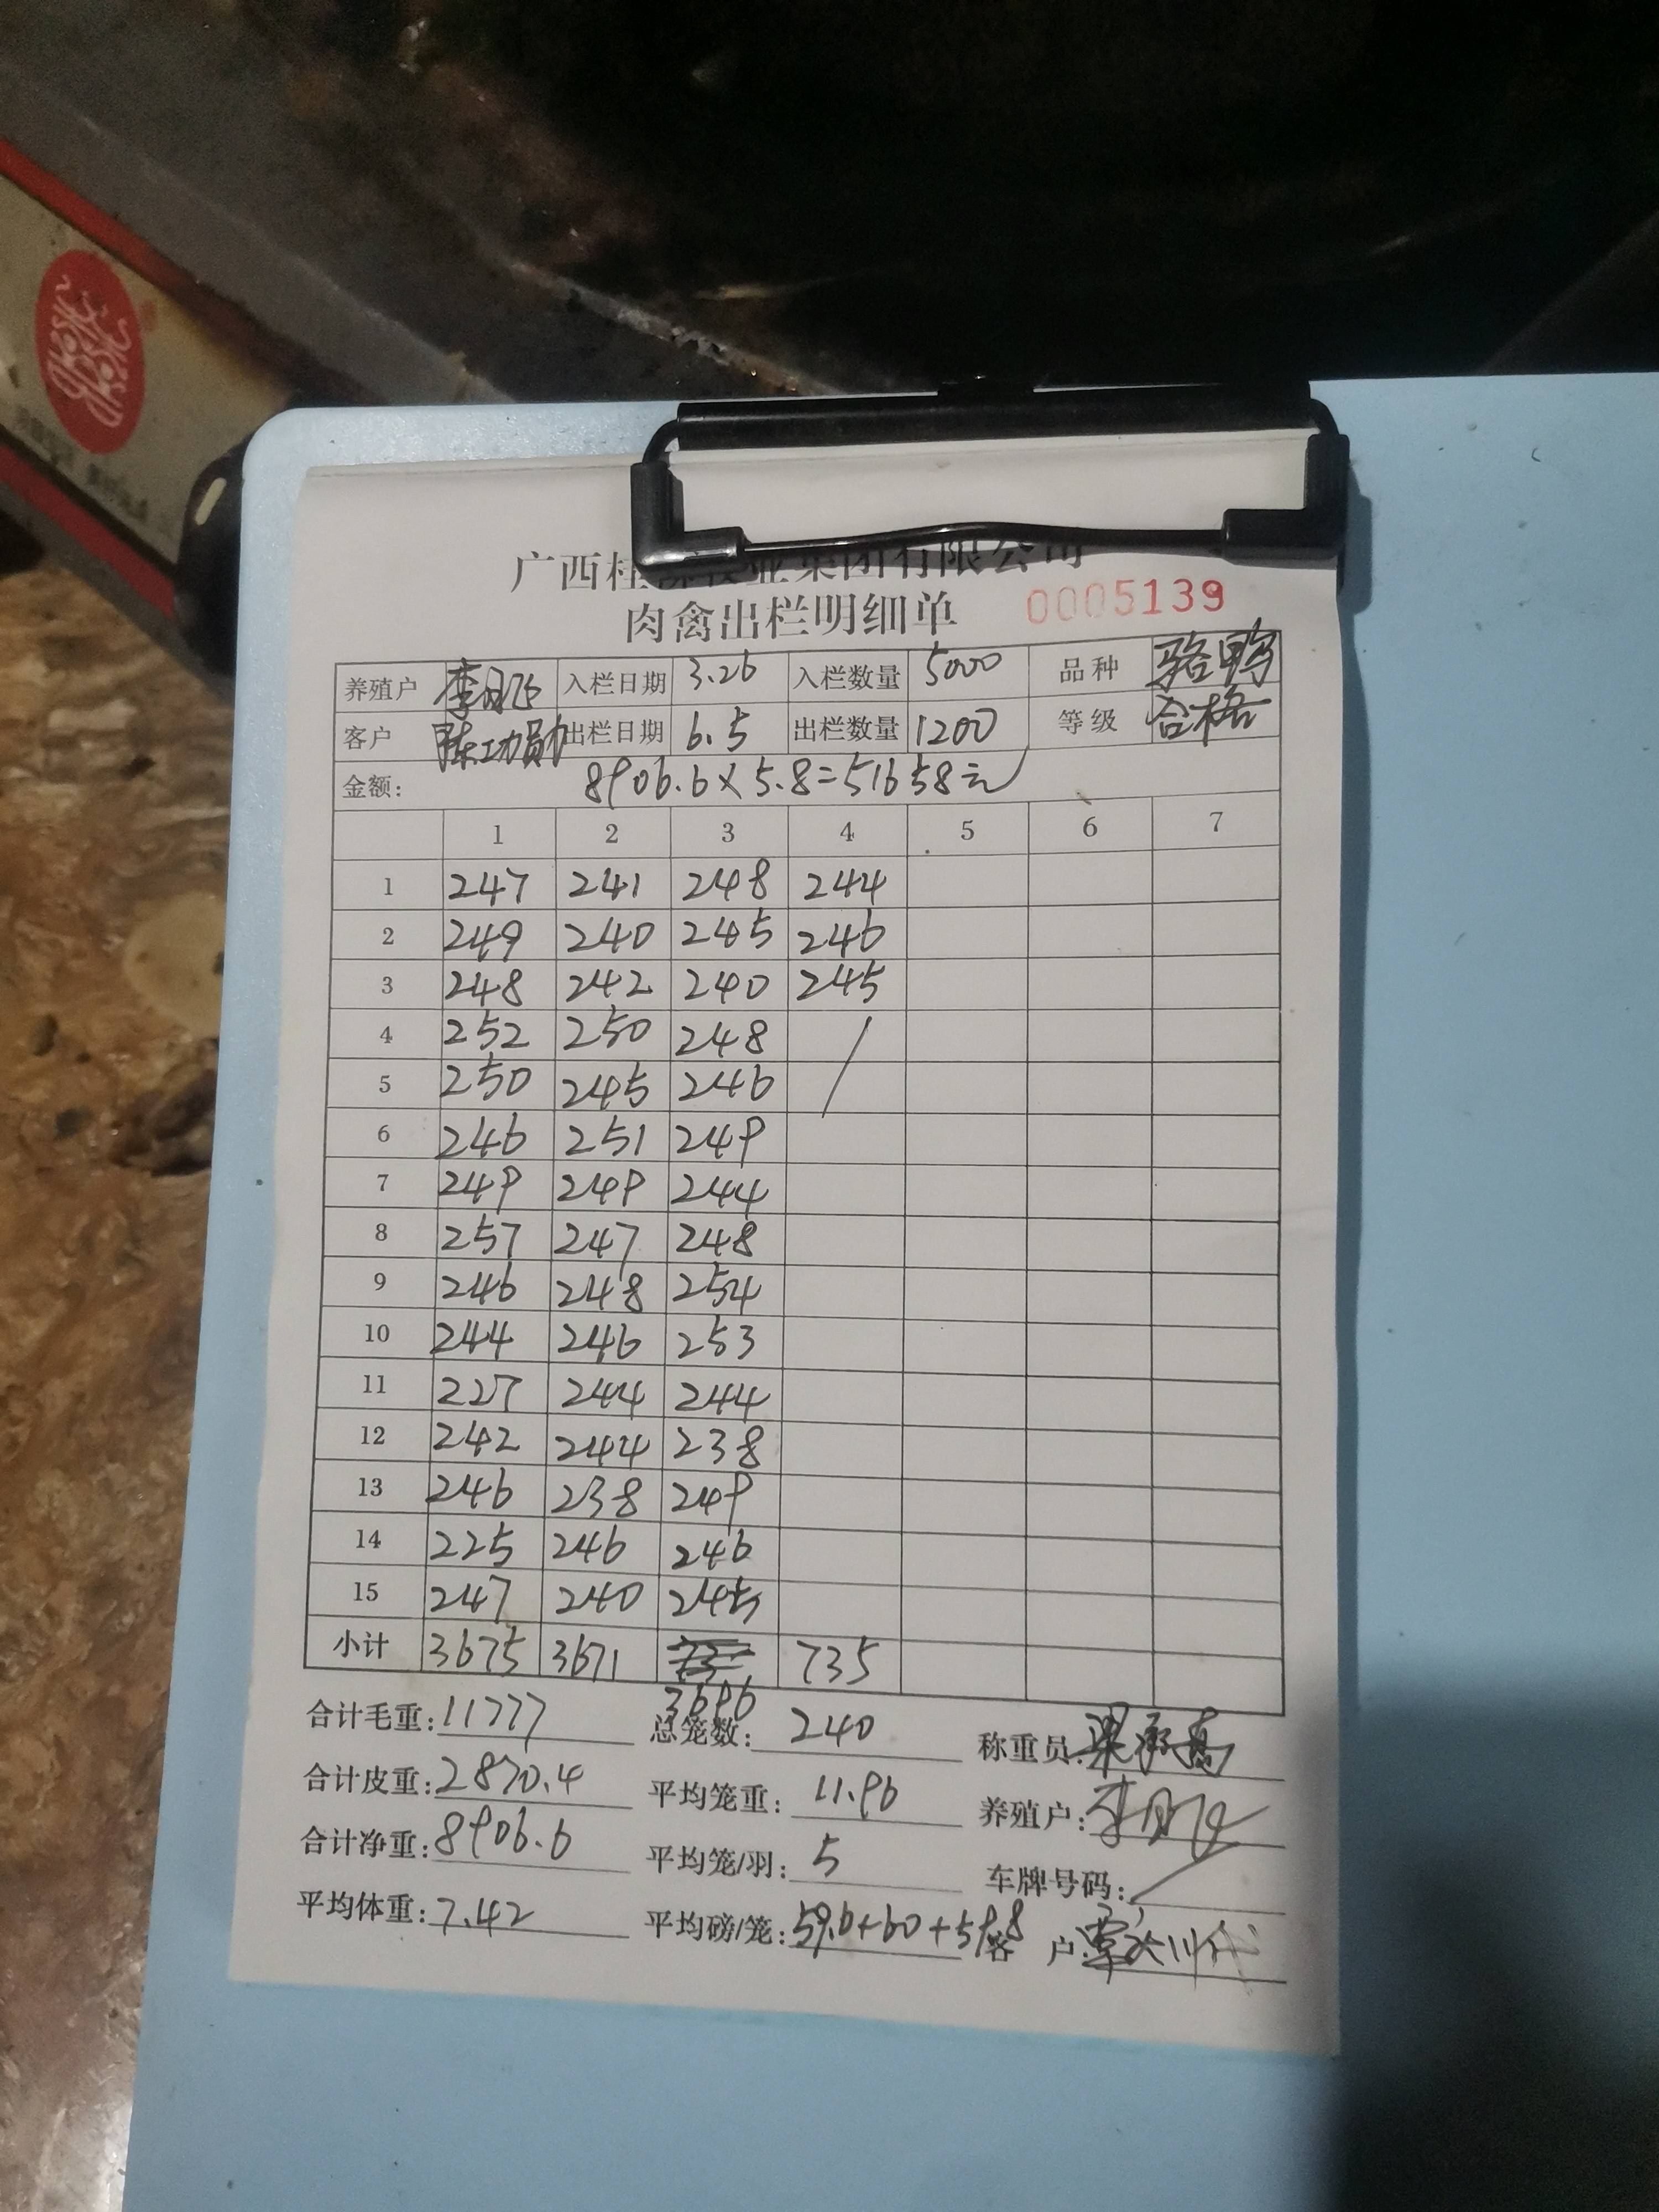 广西桂
集团有限公司
肉禽出栏明细单 0005139
养殖户 李月飞 入栏日期 3.26 入栏数量 5000 品种
客户 陈功勋 出栏日期 6.5 出栏数量 1200 等级 合格
金额: 8906.6×5.8=51658元
1 2 3 4 5 6 7
1 247 241 248 244
2 249 240 245 246
3 248 242 240 245
4 252 250 248 /
5 250 245 246
6 246 251 249
7 249 249 244
8 257 247 248
9 246 248 254
10 244 246 253
11 227 244 244
12 242 244 238
13 246 238 249
14 225 246 246
15 247 240 245
小计 3675 3671 735
3696
合计毛重: 11777 总笼数: 240 称重员:
合计皮重: 2870.4 平均笼重: 11.96 养殖户: 李月飞
合计净重: 8906.6 平均笼/羽: 5 车牌号码: /
平均体重: 7.42 平均磅/笼: 59.0+60+59.8 客 户: